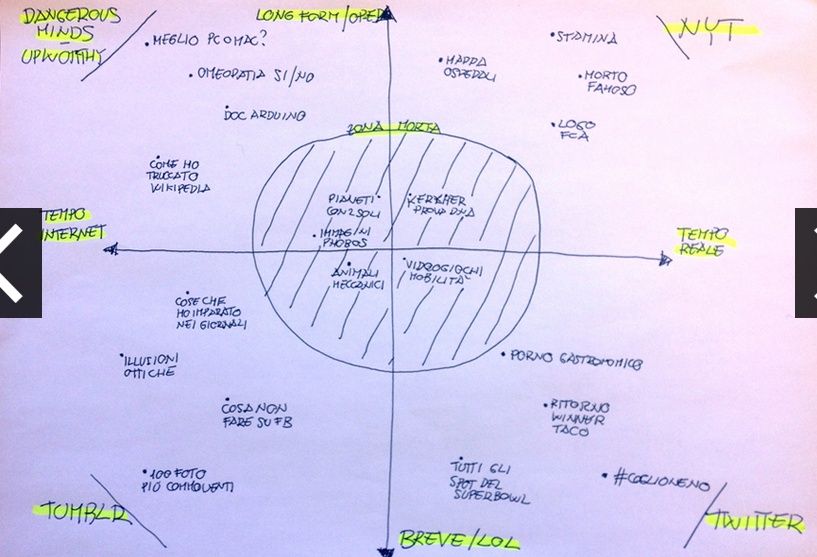 DANGEROUS
MINDS
UPWORTHY
LONG FORM/OPED
NYT
MEGLIO PC O MAC?
STAMINA
MAPPA
OSPEDALI
OMEOPATIA SI/NO
MORTO
FAMOSO
DOC ARDUINO
LOGO
FCA
ZONA MORTA
COME HO
TRUCCATO
WIKIPEDIA
PIANETI
CON 2 SOLI
PROVA DNA
TEMPO
INTERNET
IMMAGINI
PHOBOS
TEMPO
REALE
ANIMALI
MECCANICI
VIDEOGIOCHI
MOBILITÀ
COSE CHE
HO IMPARATO
NEI GIORNALI
ILLUSIONI
OTTICHE
PORNO GASTRONOMICO
COSA NON
FARE SU FB
RITORNO
WINNER
TACO
100 FOTO
PIÙ COMMOVENTI
TUTTI GLI
SPOT DEL
SUPERBOWL
#COGLIONENO
TUMBLR
TWITTER
BREVE/LOL